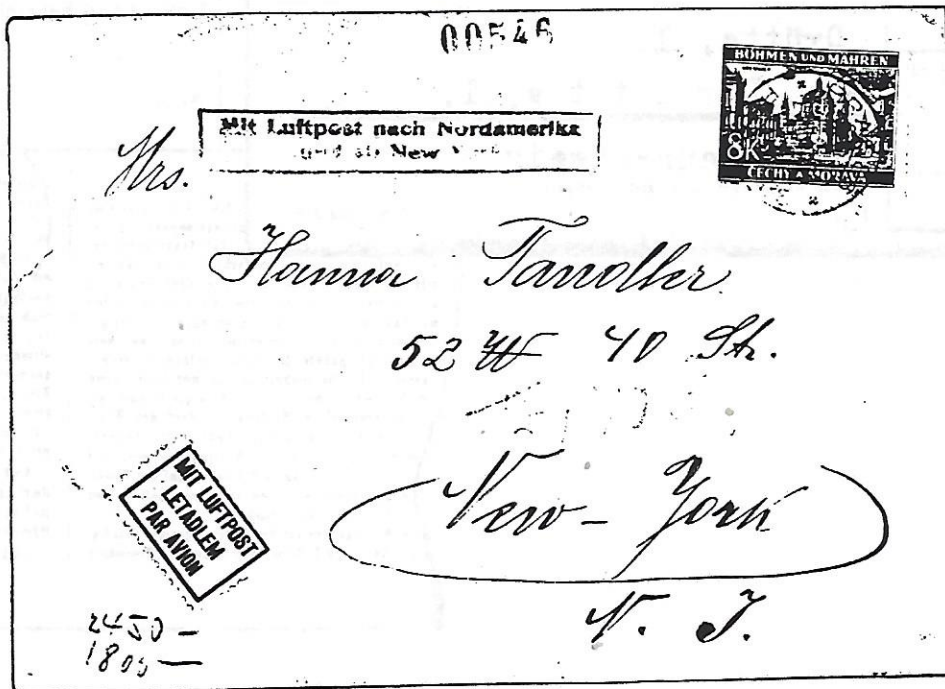 00546
BÖHMEN UND MÄHREN
8K
ČECHY A MORAVA
Mit Luftpost nach Nordamerika
und ab New York
Mrs.
Hanna Tandler
52 W 40 Str.
New-York
N. J.
MIT LUFTPOST
LETADLEM
PAR AVION
2450 —
1800 —